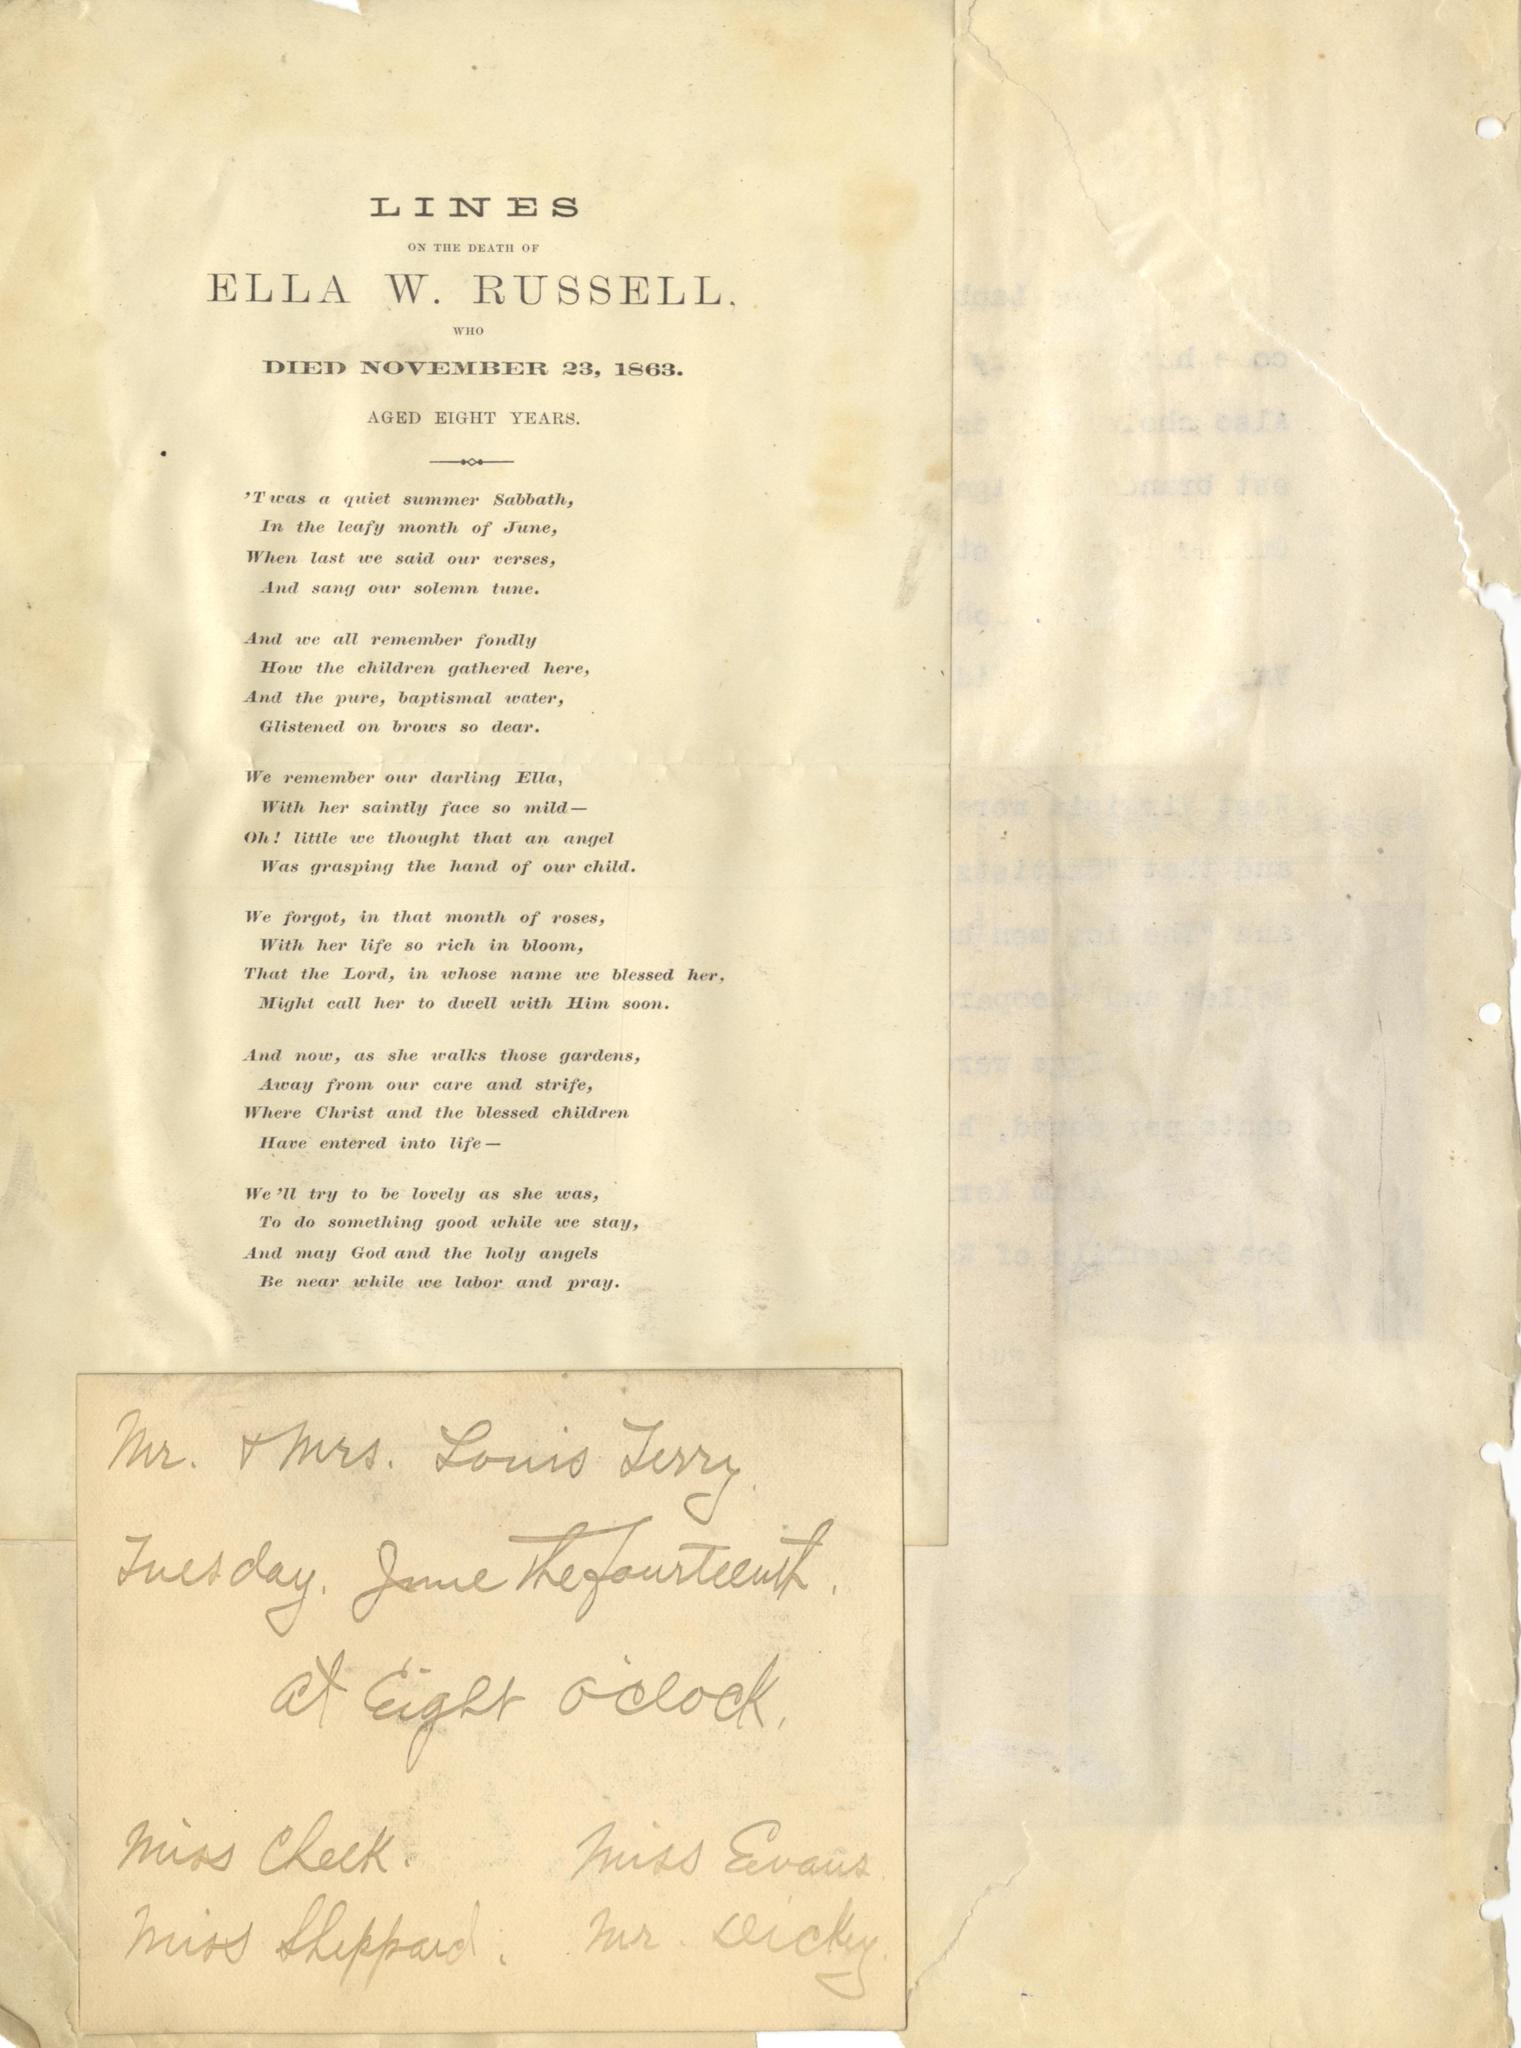 LINES
ON THE DEATH OF
ELLA W. RUSSELL,
WHO
DIED NOVEMBER 23, 1863.
AGED EIGHT YEARS.
'T was a quiet summer Sabbath,
In the leafy month of June,
When last we said our verses,
And sang our solemn tune.
And we all remember fondly
How the children gathered here,
And the pure, baptismal water,
Glistened on brows so dear.
We remember our darling Ella,
With her saintly face so mild—
Oh! little we thought that an angel
Was grasping the hand of our child.
We forgot, in that month of roses,
With her life so rich in bloom,
That the Lord, in whose name we blessed her,
Might call her to dwell with Him soon.
And now, as she walks those gardens,
Away from our care and strife,
Where Christ and the blessed children
Have entered into life—
We 'll try to be lovely as she was,
To do something good while we stay,
And may God and the holy angels
Be near while we labor and pray.
Mr. & Mrs. Louis Terry.
Tuesday. June the fourteenth.
at Eight o'clock.
Miss Cheek. Miss Evans.
Miss Sheppard. Mr. Dicky.